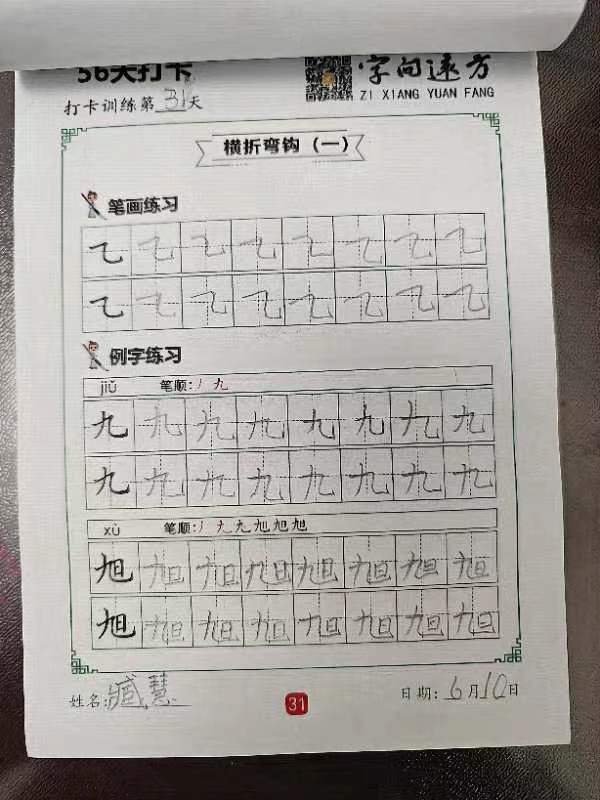 56天打卡
字向远方
打卡训练第31天
ZI XIANG YUAN FANG
横折弯钩（一）
笔画练习
例字练习
jiǔ 笔顺：丿九
九九九九九九九九
九九九九九九九九
xù 笔顺：丿九九旭旭旭
旭旭旭旭旭旭旭旭
旭旭旭旭旭旭旭旭
姓名：臧慧
31
日期：6月10日